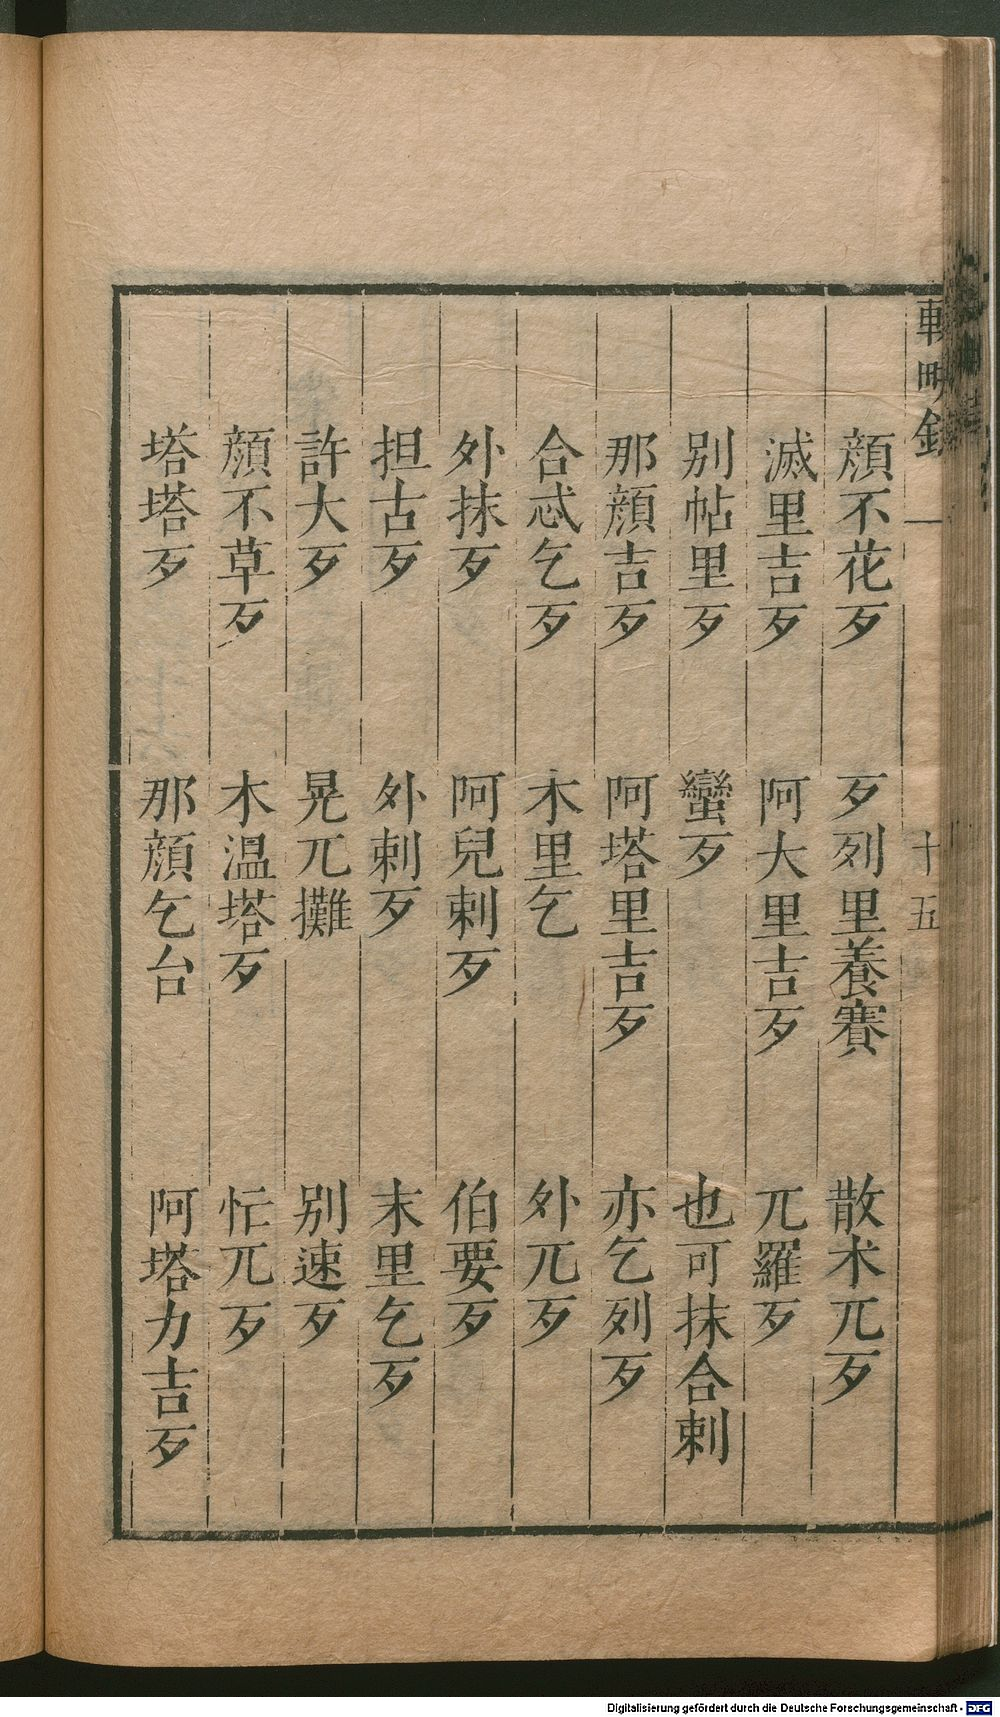 輟畊録 一 十五
顔不花歹 歹列里養賽 散术兀歹
滅里吉歹 阿大里吉歹 兀羅歹
别帖里歹 蠻歹 也可抹合剌
那顔吉歹 阿塔里吉歹 亦乞列歹
合忒乞歹 木里乞 外兀歹
外抹歹 阿兒剌歹 伯要歹
担古歹 外剌歹 末里乞歹
許大歹 晃兀攤 别速歹
顔不草歹 木温塔歹 忙兀歹
塔塔歹 那顔乞台 阿塔力吉歹
Digitalisierung gefördert durch die Deutsche Forschungsgemeinschaft - DFG